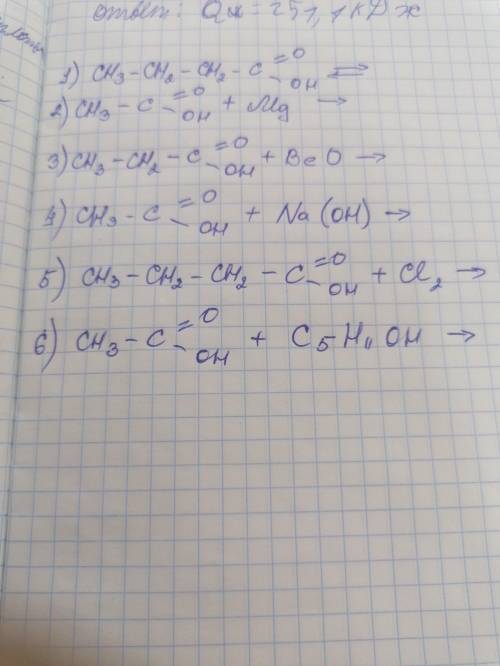 ответ: Qм = 251,1 кДж
1) CH₃-CH₂-CH₂-C=O-OH ⇌
2) CH₃-C=O-OH + Mg →
3) CH₃-CH₂-C=O-OH + BeO →
4) CH₃-C=O-OH + Na(OH) →
5) CH₃-CH₂-CH₂-C=O-OH + Cl₂ →
6) CH₃-C=O-OH + C₅H₁₁OH →